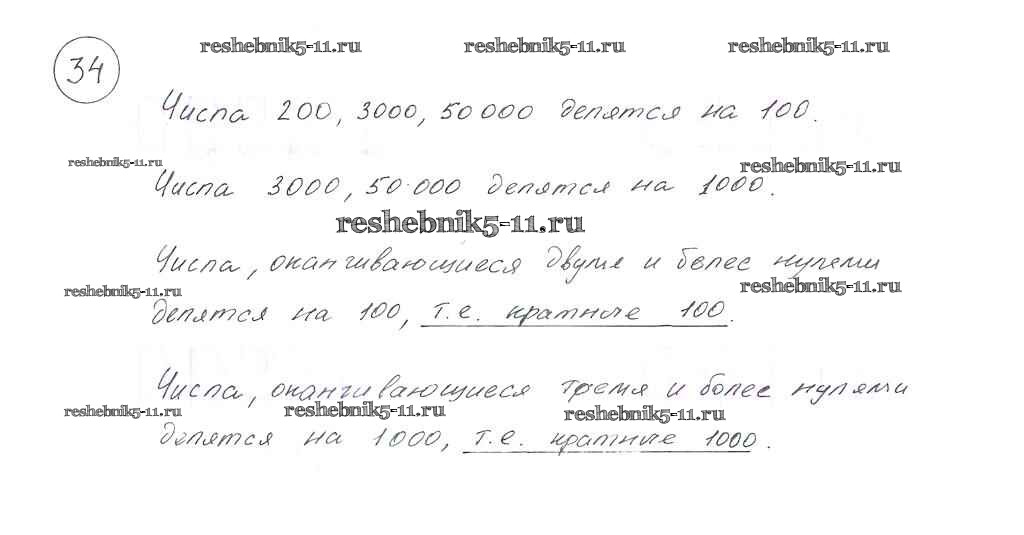 reshebnik5-11.ru reshebnik5-11.ru reshebnik5-11.ru
34
Числа 200, 3000, 50 000 делятся на 100.
reshebnik5-11.ru reshebnik5-11.ru
Числа 3000, 50 000 делятся на 1000.
reshebnik5-11.ru
Числа, оканчивающиеся двумя и более нулями
reshebnik5-11.ru reshebnik5-11.ru
делятся на 100, т.е. кратные 100.
Числа, оканчивающиеся тремя и более нулями
reshebnik5-11.ru reshebnik5-11.ru reshebnik5-11.ru
делятся на 1000, т.е. кратные 1000.